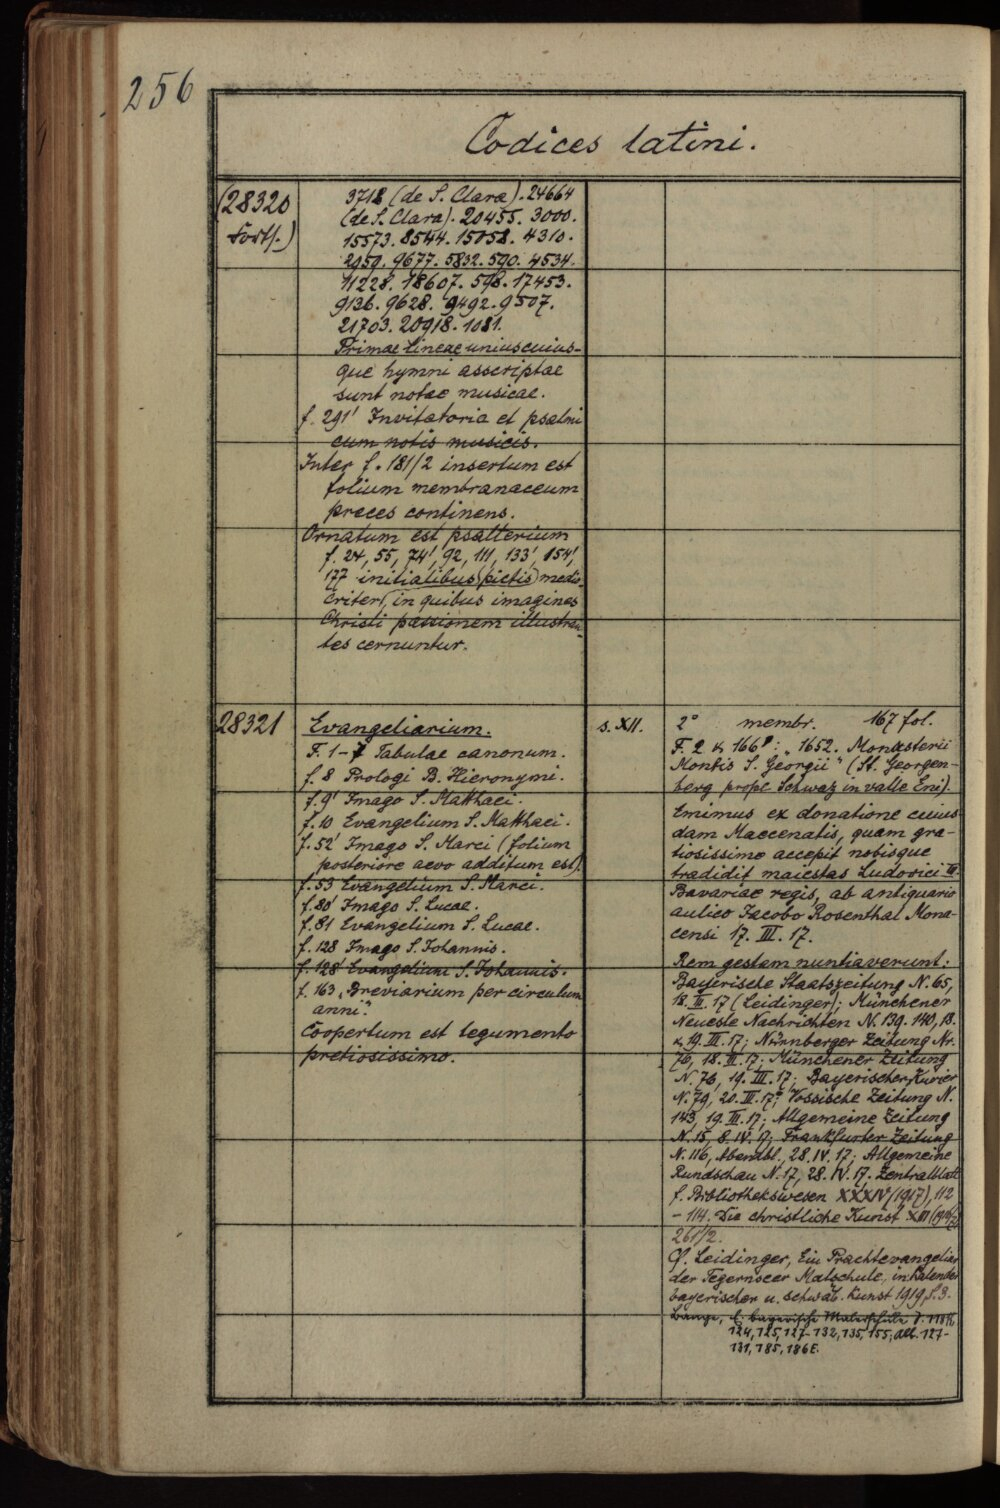 256
Codices latini.
(28320
Forts.)
3718 (de S. Clara). 24664
(de S. Clara). 20455. 3000.
15573. 8544. 15058. 4310.
2959. 9677. 5832. 590. 4534.
11228. 18607. 598. 17453.
9136. 9628. 9492. 9507.
21703. 20918. 1081.
Primae lineae uniuscuius-
que hymni asscriptae
sunt notae musicae.
f. 291' Invitatoria et psalmi
cum notis musicis.
Inter f. 181/2 insertum est
folium membranaceum
preces continens.
Ornatum est psalterium
f. 24, 55, 74', 92, 111, 133', 154',
177 initialibus (pictis) medio
criter, in quibus imagines
Christi passionem illustran
tes cernuntur.
28321
Evangeliarium.
F. 1-7 Tabulae canonum.
f. 8 Prologi B. Hieronymi.
f. 9' Imago S. Matthaei.
f. 10 Evangelium S. Matthaei.
f. 52' Imago S. Marci (folium
posteriore aevo additum est).
f. 53 Evangelium S. Marci.
f. 80' Imago S. Lucae.
f. 81 Evangelium S. Lucae.
f. 128 Imago S. Johannis.
f. 128' Evangelium S. Johannis.
f. 163 „Breviarium per circulum
anni."
Coopertum est tegumento
pretiosissimo.
s. XII.
2° membr. 167 fol.
F. 2 & 166': „1652. Monasterii
Montis S. Georgii" (St. Georgen-
berg prope Schwaz in valle Eni).
Emimus ex donatione cuius
dam Maecenatis, quam gra-
tiosissime accepit nobisque
tradidit maiestas Ludovici III.
Bavariae regis, ab antiquario
aulico Jacobo Rosenthal Mona-
censi 17. III. 17.
Rem gestam nuntiaverunt:
Bayerische Staatszeitung N. 65,
18. III. 17 (Leidinger); Münchener
Neueste Nachrichten N. 139. 140, 18.
& 19. III. 17; Nürnberger Zeitung Nr.
76, 18. III. 17; Münchener Zeitung
N. 76, 19. III. 17; Bayerischer Kurier
N. 79, 20. III. 17; Vossische Zeitung N.
143, 19. III. 17; Allgemeine Zeitung
N. 15, 8. IV. 17; Frankfurter Zeitung
N. 116, Abendbl., 28. IV. 17; Allgemeine
Rundschau N. 17, 28. IV. 17. Zentralblatt
f. Bibliothekswesen XXXIV (1917), 112
- 114. Die christliche Kunst XIII (1916/7)
261/2.
G. Leidinger, Ein Prachtevangeliar
der Tegernseer Malschule, in Kalender
bayerischer u. schwäb. Kunst 1919, S. 3.
bayerische Malerschule
124, 125, 127-132, 135, 155; Abb. 127-
131, 185, 186 E.